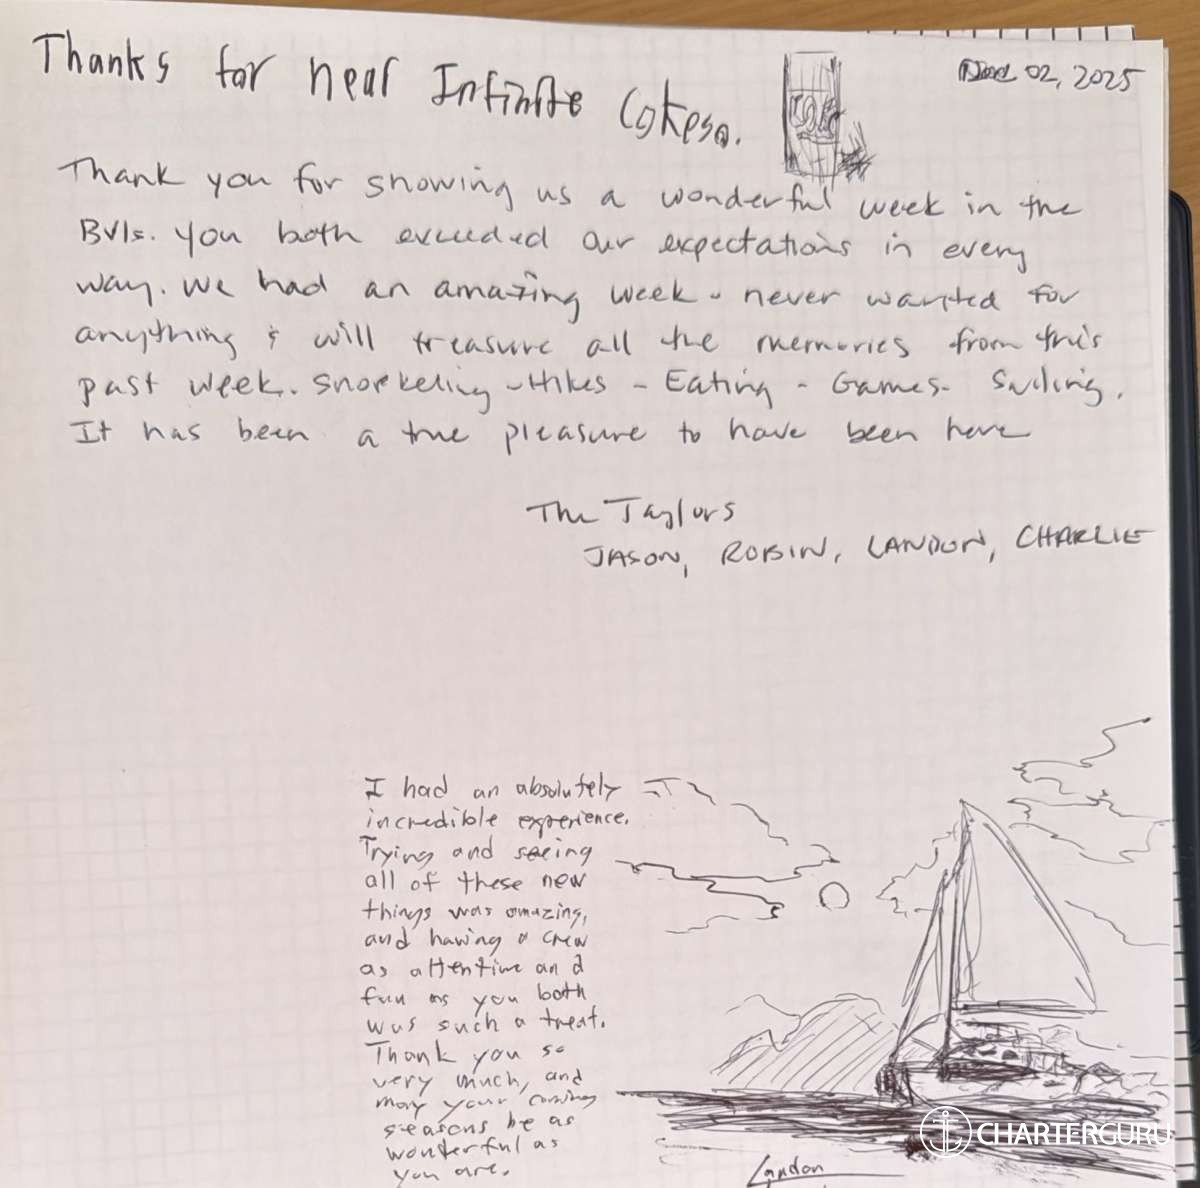 Thanks for near Infinite Cokes.
02, 2025
Thank you for showing us a wonderful week in the
BVIs. You both exceeded our expectations in every
way. We had an amazing week - never wanted for
anything & will treasure all the memories from this
past week. Snorkeling - Hikes - Eating - Games - Sailing.
It has been a true pleasure to have been here
The Taylors
JASON, ROBIN, LANDON, CHARLIE
I had an absolutely
incredible experience.
Trying and seeing
all of these new
things was amazing,
and having a crew
as attentive and
fun as you both
was such a treat.
Thank you so
very much, and
may your coming
seasons be as
wonderful as
you are.
Landon
CHARTERGURU